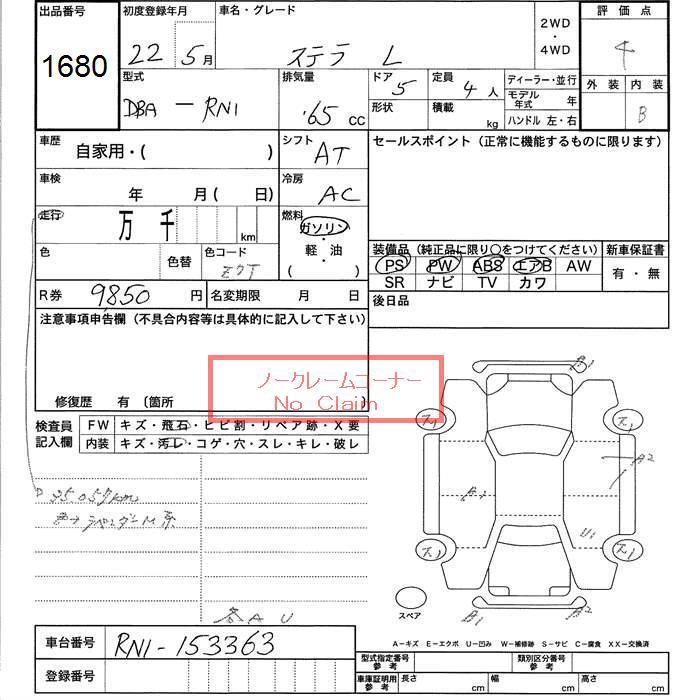 出品番号
1680
初度登録年月
22 5月
車名・グレード
ステラ L
2WD
・
4WD
評価点
4
外装 内装
B
型式
DBA - RN1
排気量
'65 cc
ドア
5
定員
4 人
形状
積載
kg
ディーラー・並行
モデル年式 年
ハンドル 左・右
車歴
自家用・( )
シフト
AT
セールスポイント (正常に機能するものに限ります)
車検
年 月 ( 日)
冷房
AC
走行
万 千 km
燃料
ガソリン
・
軽・油
( )
色
色替
色コード
Z9T
装備品 (純正品に限り○をつけてください)
PS PW ABS エアB AW
SR ナビ TV カワ
新車保証書
有・無
R券
9,850 円
名変期限 月 日
後日品
注意事項申告欄 (不具合内容等は具体的に記入して下さい)
ノークレームコーナー
No Claim
修復歴 有 〔箇所
検査員
記入欄
FW キズ・飛石・ヒビ割・リペア跡・X要
内装 キズ・汚レ・コゲ・穴・スレ・キレ・破レ
35,057km
色→ラベンダーM系
各AU
B1
ス1
ス1
A2
U1
ス1
ス1
スペア
B1
B2
A-キズ E-エクボ U-凹み W-補修跡 S-サビ C-腐食 XX-交換済
車台番号
RN1-153363
登録番号
型式指定番号
参考
類別区分番号
参考
車庫証明用
参考
長さ cm 幅 cm 高さ cm